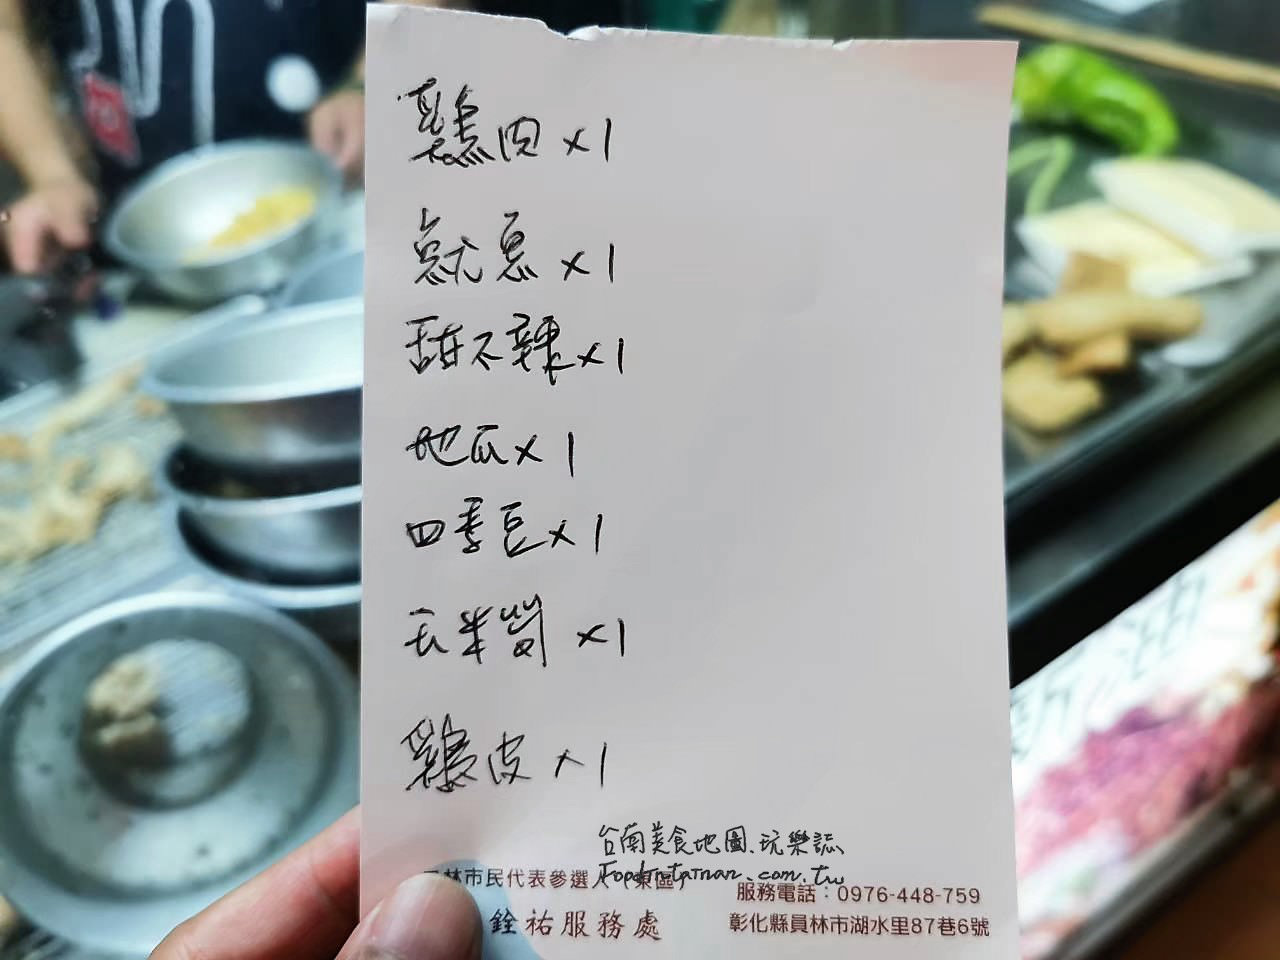 雞肉 x1
魷魚 x1
甜不辣 x1
地瓜 x1
四季豆 x1
玉米筍 x1
雞皮 x1
台南美食地圖.玩樂誌
Foodintainan.com.tw
林市民代表參選人（東區）
服務電話：0976-448-759
銓祐服務處
彰化縣員林市湖水里87巷6號